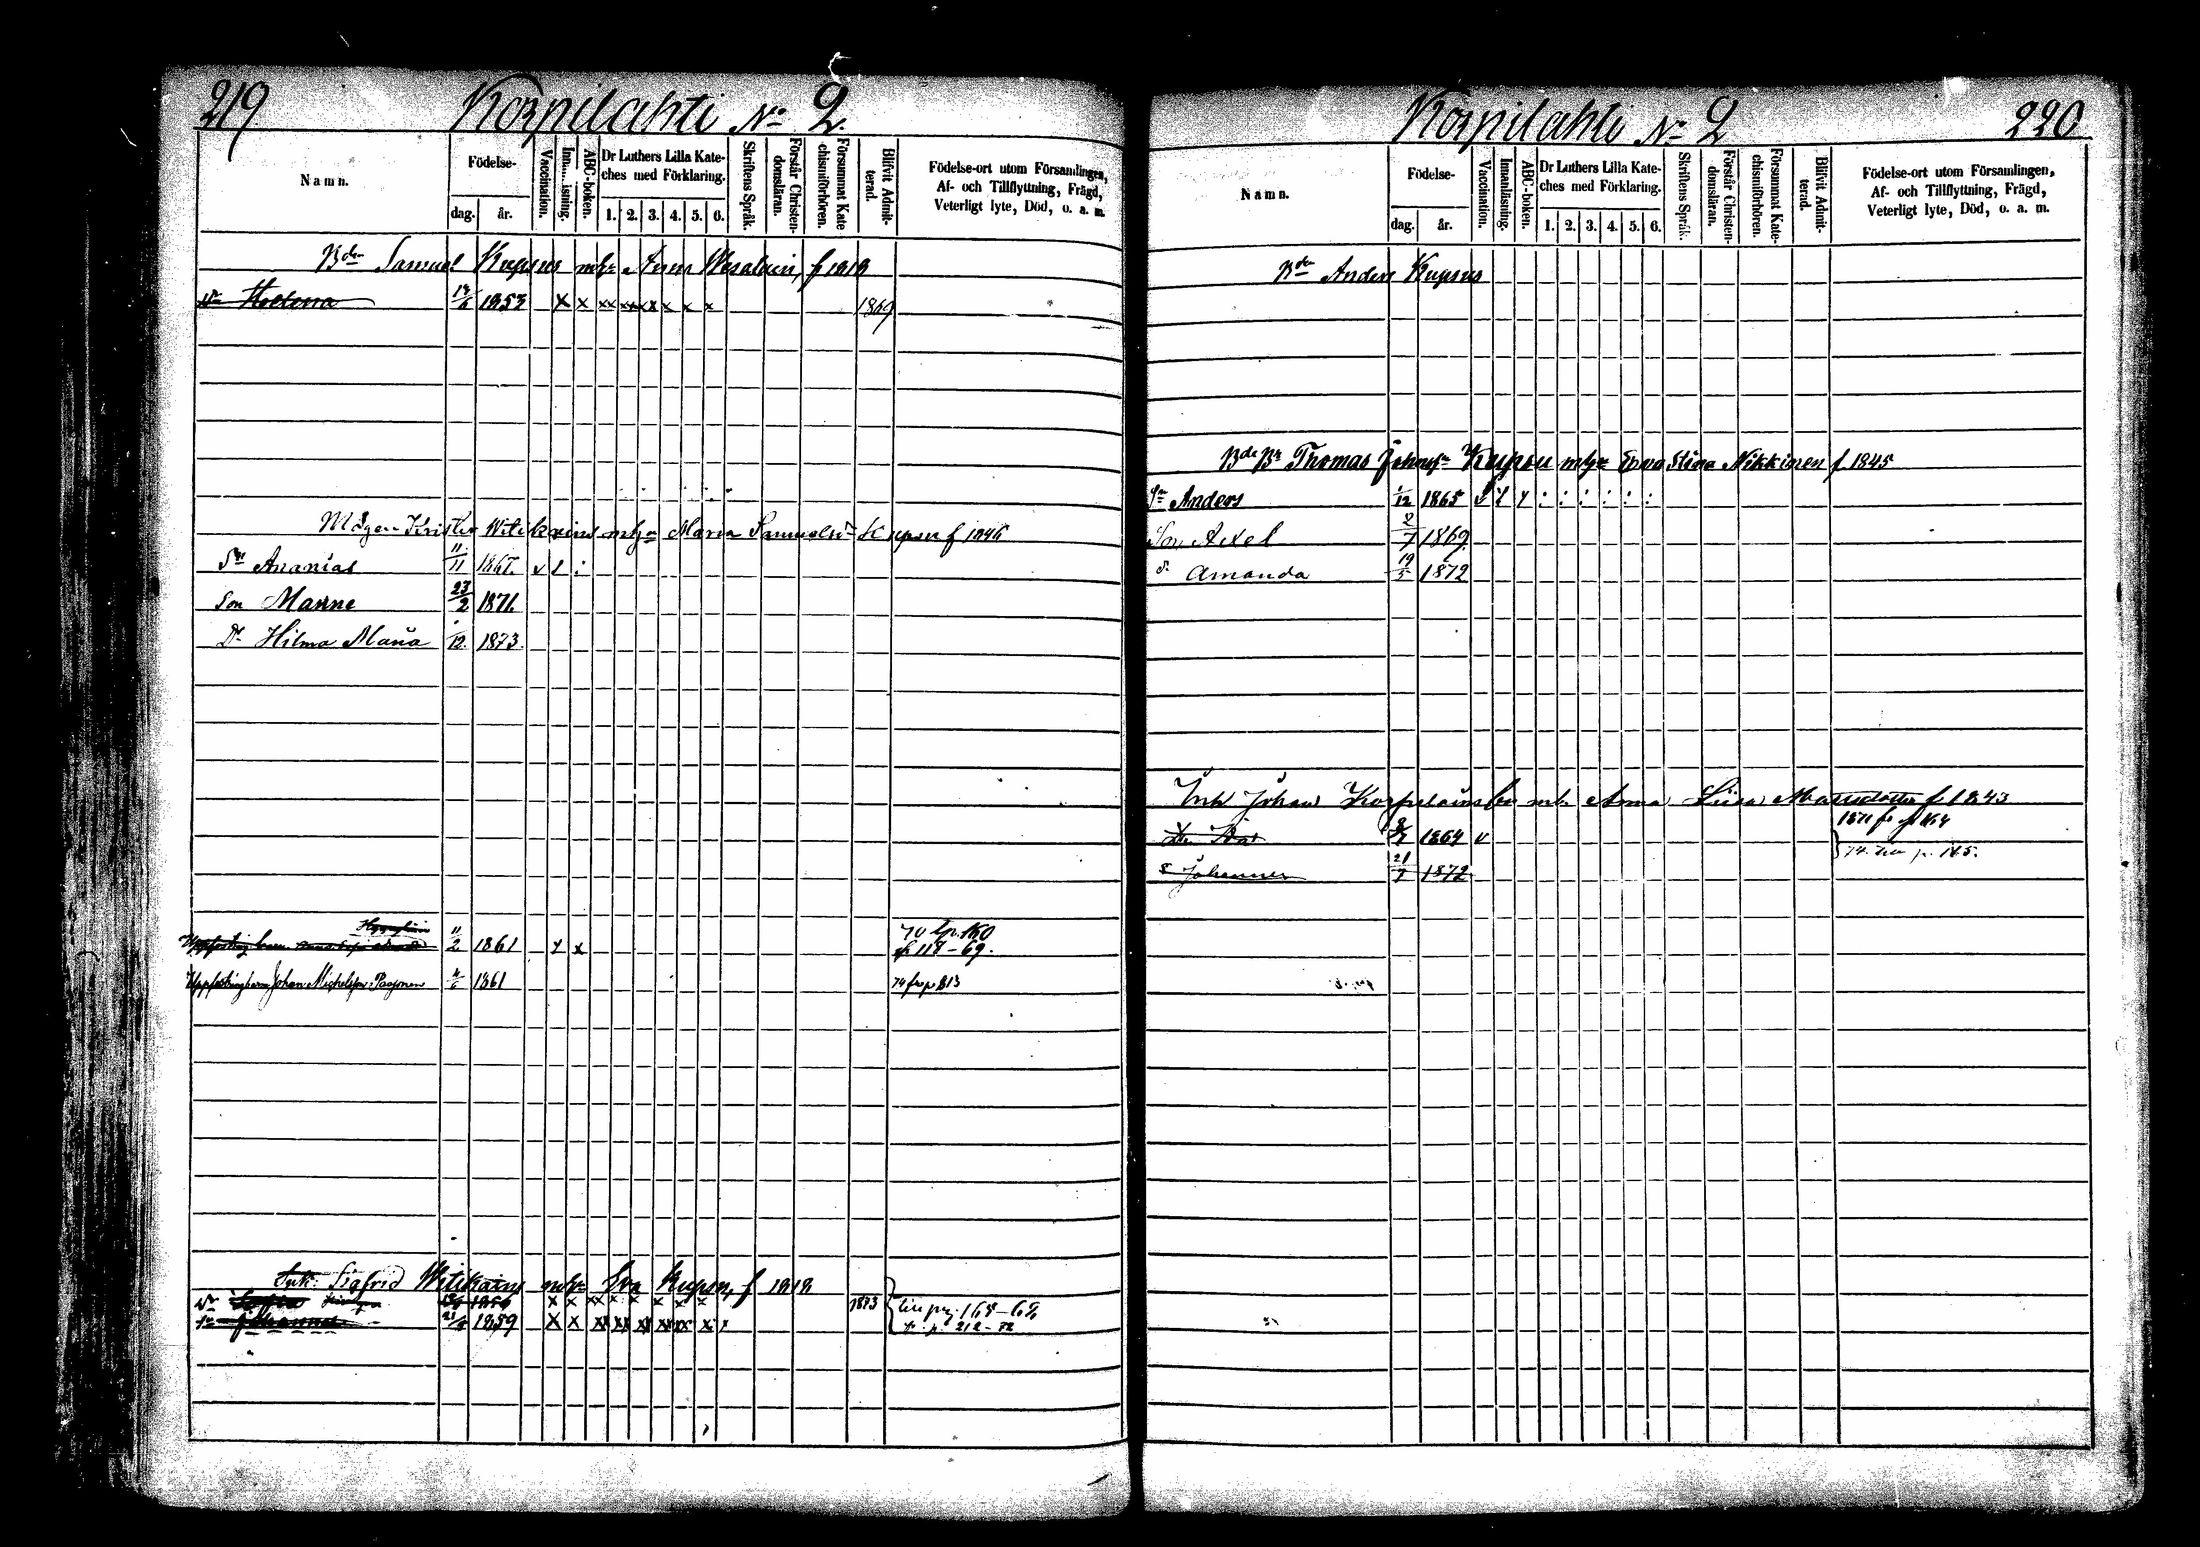 219 Korpilahti No 2.
Namn.
Födelse-
dag. år.
Vaccination.
ABC-boken.
Dr Luthers Lilla Kate-
ches med Förklaring.
1. 2. 3. 4. 5. 6.
Skriftens Språk.
Förstår Christen-
domsläran.
Försummat Kate
chismiförhören.
Blifvit Admit-
terad.
Födelse-ort utom Församlingen,
Af- och Tillflyttning, Frägd,
Veterligt lyte, Död, o. a. m.
Bdn Samuel Kupsus mhr Anna f 1818
Dr Helena 1853 x x xx x x x 1869
Mågen Krister Witikains mhr Maria Samuelsdr Kupsu f 1846
Sn Ananias 11/11 1867. v l :
Son Manne 23/2 1871.
Dr Hilma Maria /12. 1873.
11/2 1861 x
70 p. 160
118-69.
Uppfostringbarn Johan Michelson Pasonen 4/6 1861 74 fr p 213
Ink: Sigfrid Witikains mhr Eva Kupsu, f 1818
Dr Sofia x x xx x x x x 1873 till pag. 168-69
Sn Johannes 1859 x x xx xx xx xx x x fr. p. 212-72
Korpilahti No 2 220
Namn.
Födelse-
dag. år.
Vaccination.
Innanläsning.
ABC-boken.
Dr Luthers Lilla Kate-
ches med Förklaring.
1. 2. 3. 4. 5. 6.
Skriftens Språk.
Förstår Christen-
domsläran.
Försummat Kate-
chismiförhören.
Blifvit Admit-
terad.
Födelse-ort utom Församlingen,
Af- och Tillflyttning, Frägd,
Veterligt lyte, Död, o. a. m.
Bdn Anders Kupsus
Bdn Br Thomas Johansn Kupsu mhr Eva Stina Nikkinen f 1845
Sn Anders 1/12 1865 v : : : : : :
Son Axel 2/7 1869.
d. Amanda 19/5 1872
Ink Johan Korpelainen mhr Anna Lisa Mattsdotter f 1843
1871 fr p 164
1864 v
74. till p. 165.
s Johannes 21/7 1872